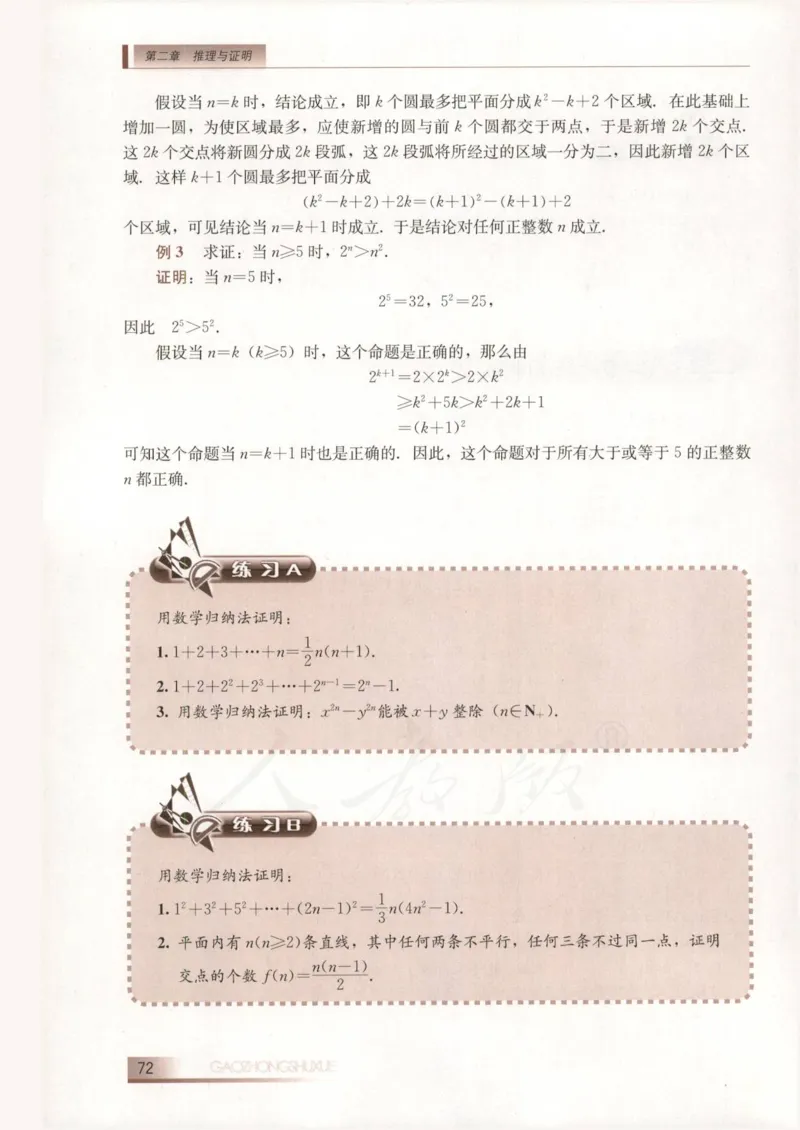 第二章 推理与证明
假设当 n=k 时，结论成立，即 k 个圆最多把平面分成 k²－k＋2 个区域．在此基础上
增加一圆，为使区域最多，应使新增的圆与前 k 个圆都交于两点，于是新增 2k 个交点．
这 2k 个交点将新圆分成 2k 段弧，这 2k 段弧将所经过的区域一分为二，因此新增 2k 个区
域．这样 k＋1 个圆最多把平面分成
(k²－k＋2)＋2k＝(k＋1)²－(k＋1)＋2
个区域，可见结论当 n＝k＋1 时成立．于是结论对任何正整数 n 成立．
例 3 求证：当 n≥5 时，2ⁿ＞n²．
证明：当 n＝5 时，
2⁵＝32，5²＝25，
因此 2⁵＞5²．
假设当 n＝k（k≥5）时，这个命题是正确的，那么由
2ᵏ⁺¹＝2×2ᵏ＞2×k²
≥k²＋5k＞k²＋2k＋1
＝(k＋1)²
可知这个命题当 n＝k＋1 时也是正确的．因此，这个命题对于所有大于或等于 5 的正整数
n 都正确．
练习A
用数学归纳法证明：
1. 1＋2＋3＋…＋n＝\frac{1}{2}n(n＋1)．
2. 1＋2＋2²＋2³＋…＋2ⁿ⁻¹＝2ⁿ－1．
3. 用数学归纳法证明：x²ⁿ－y²ⁿ能被 x＋y 整除（n∈N₊）．
人教版®
练习B
用数学归纳法证明：
1. 1²＋3²＋5²＋…＋(2n－1)²＝\frac{1}{3}n(4n²－1)．
2. 平面内有 n(n≥2)条直线，其中任何两条不平行，任何三条不过同一点，证明
交点的个数 f(n)＝\frac{n(n－1)}{2}．
72 GAOZHONGSHUXUE